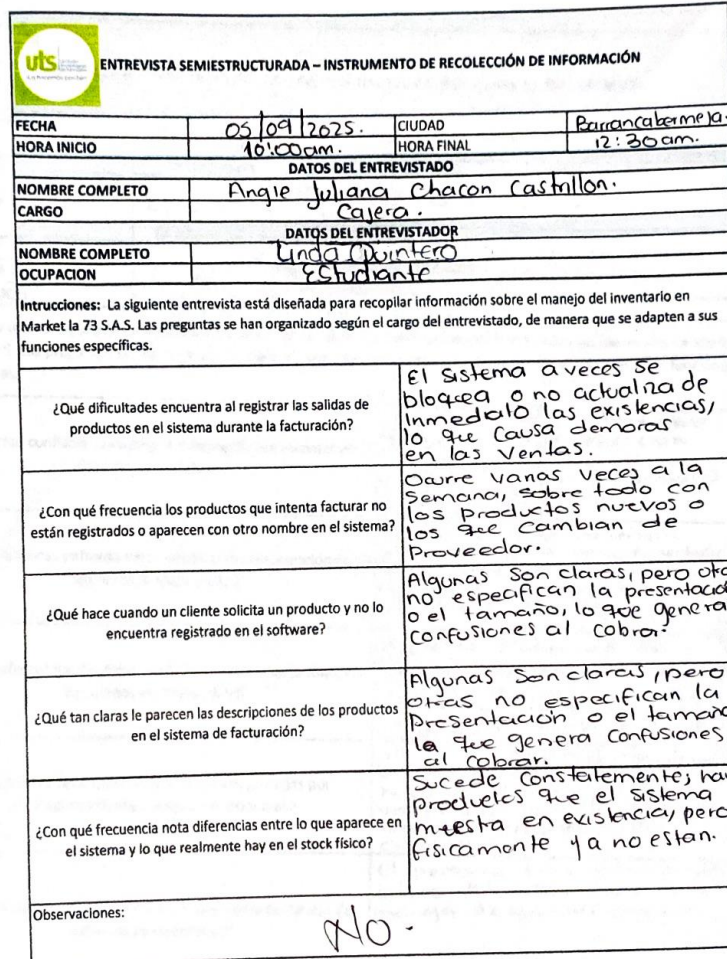 uts
ENTREVISTA SEMIESTRUCTURADA – INSTRUMENTO DE RECOLECCIÓN DE INFORMACIÓN
FECHA 05/09/2025. CIUDAD Barrancabermeja.
HORA INICIO 10:00am. HORA FINAL 12:30am.
DATOS DEL ENTREVISTADO
NOMBRE COMPLETO Angie Juliana Chacon Castrillon.
CARGO Cajera.
DATOS DEL ENTREVISTADOR
NOMBRE COMPLETO Linda Quintero
OCUPACION Estudiante
Intrucciones: La siguiente entrevista está diseñada para recopilar información sobre el manejo del inventario en
Market la 73 S.A.S. Las preguntas se han organizado según el cargo del entrevistado, de manera que se adapten a sus
funciones específicas.
¿Qué dificultades encuentra al registrar las salidas de
productos en el sistema durante la facturación?
El sistema a veces se
bloquea o no actualiza de
inmediato las existencias,
lo que causa demoras
en las ventas.
¿Con qué frecuencia los productos que intenta facturar no
están registrados o aparecen con otro nombre en el sistema?
Ocurre varias veces a la
semana, sobre todo con
los productos nuevos o
los que cambian de
proveedor.
¿Qué hace cuando un cliente solicita un producto y no lo
encuentra registrado en el software?
Algunas son claras, pero ot
no especifican la presentació
o el tamaño, lo que genera
confusiones al cobrar.
¿Qué tan claras le parecen las descripciones de los productos
en el sistema de facturación?
Algunas son claras, pero
otras no especifican la
presentación o el tamaño
la que genera confusiones
al cobrar.
¿Con qué frecuencia nota diferencias entre lo que aparece en
el sistema y lo que realmente hay en el stock físico?
Sucede constatemente, ha
productos que el sistema
muestra en existencia, pero
fisicamente ya no estan.
Observaciones:
NO.